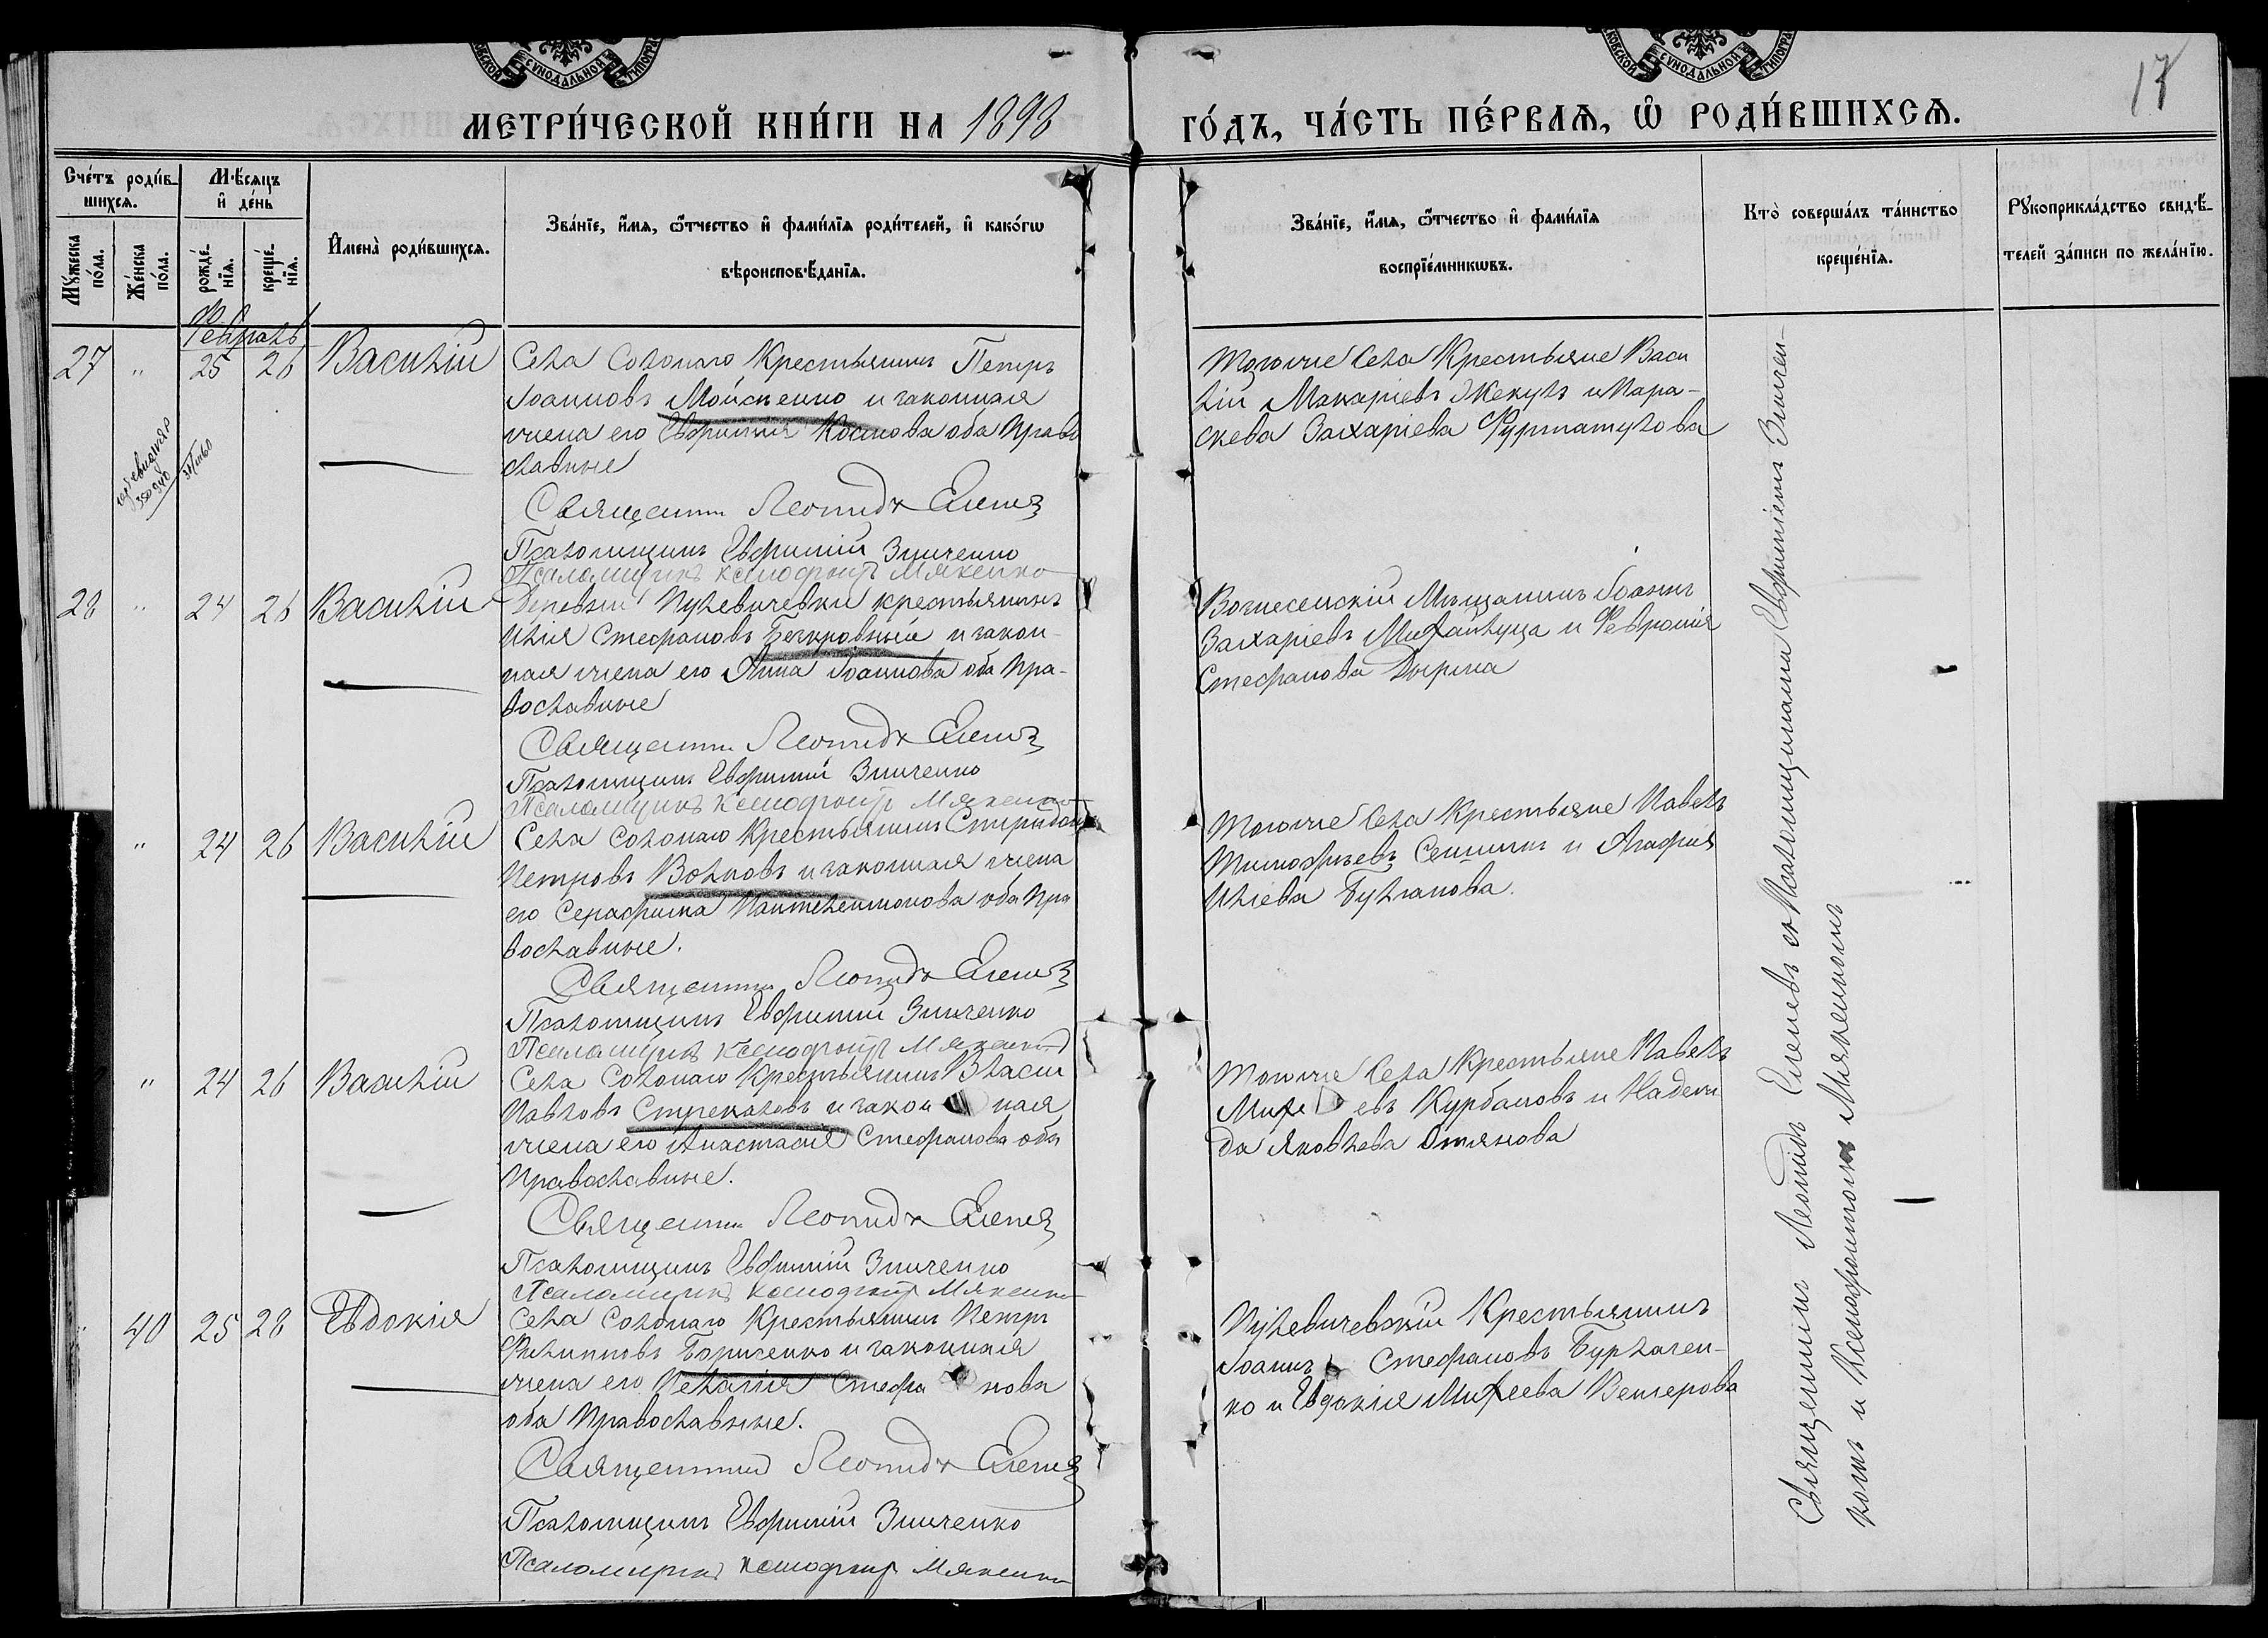 МОСКОВСКОЙ СѴНОДАЛЬНОЙ ТИПОГРА
МОСКОВСКОЙ СѴНОДАЛЬНОЙ ТИПОГРА
17
МЕТРИ́ЧЕСКОЙ КНИ́ГИ НА 1898
ГО́ДЪ, ЧА́СТЬ ПЕ́РВАѦ, Ѿ РОДИ́ВШИХСѦ.
Сче́тъ роди́в-
шихсѧ.
Мѣ́сѧцъ
и҆ де́нь
Мꙋ́жеска
по́ла.
Же́нска
по́ла.
рожде́-
нїѧ.
креще́-
нїѧ.
И҆мена̀ роди́вшихсѧ.
Зва́нїе, и҆́мѧ, ѻ҆́тчество и҆ фами́лїѧ роди́телей, и҆ како́гѡ
вѣроисповѣ́данїѧ.
Зва́нїе, и҆́мѧ, ѻ҆́тчество и҆ фами́лїѧ
воспрїе́мникѡвъ.
Кто̀ соверша́лъ та́инство
креще́нїѧ.
Рꙋкоприкла́дство свидѣ́-
телей за́писи по жела́нїю.
Февраль
27 " 25 26 Василій
Села Солонаго Крестьянинъ Петръ
Іоанновъ Мойсѣенко и законная
жена его Евфимія Космова оба Право
славные
Священникъ Леонидъ Еленев
Псаломщикъ Евфимій Зинченко
Псаломщикъ Ксенофонтъ Мякенко
Тогоже Села Крестьяне Васи
лій Макаріевъ Жекулъ и Пара-
скева Захаріева Фурманулова
28 " 24 26 Василій
Деревни Пужевичевки крестьянинъ
Илія Стефановъ Безкровный и закон-
ная жена его Анна Іоаннова оба Пра-
вославные
Священникъ Леонидъ Еленев
Псаломщикъ Евфимій Зинченко
Псаломщикъ Ксенофонтъ Мякенко
Вознесенскій Мѣщанинъ Іоаннъ
Захаріевъ Михайлуца и Февронія
Стефанова Дырма
" 24 26 Василій
Села Солонаго Крестьянинъ Спиридонъ
Петровъ Волковъ и законная жена
его Серафима Пантелеимонова оба Пра
вославные.
Священникъ Леонидъ Еленев
Псаломщикъ Евфимій Зинченко
Псаломщикъ Ксенофонтъ Мякенко
Тогоже Села Крестьяне Павелъ
Тимофѣевъ Сенникъ и Агафія
Иліева Булганова.
" 24 26 Василій
Села Солонаго Крестьянинъ Власій
Павловъ Стрекаловъ и закон ная
жена его Анастасія Стефанова оба
Православные.
Священникъ Леонидъ Еленев
Псаломщикъ Евфимій Зинченко
Псаломщикъ Ксенофонтъ Мякенко
Тогоже Села Крестьяне Павелъ
Михе евъ Курбановъ и Надеж
да Яковлева Отянова
40 25 28 Евдокія
Села Солонаго Крестьянинъ Петръ
Филипповъ Борисенко и законная
жена его Пелагія Стефа нова
оба Православные.
Священникъ Леонидъ Еленев
Псаломщикъ Евфимій Зинченко
Псаломщикъ Ксенофонтъ Мякенко
Пужевичевскій Крестьянинъ
Іоаннъ Стефановъ Бурлачен-
ко и Евдокія Михеева Венгерова
Священникъ Леонидъ Еленевъ съ Псаломщиками Евфиміемъ Зинчен-
комъ и Ксенофонтомъ Мякенкомъ